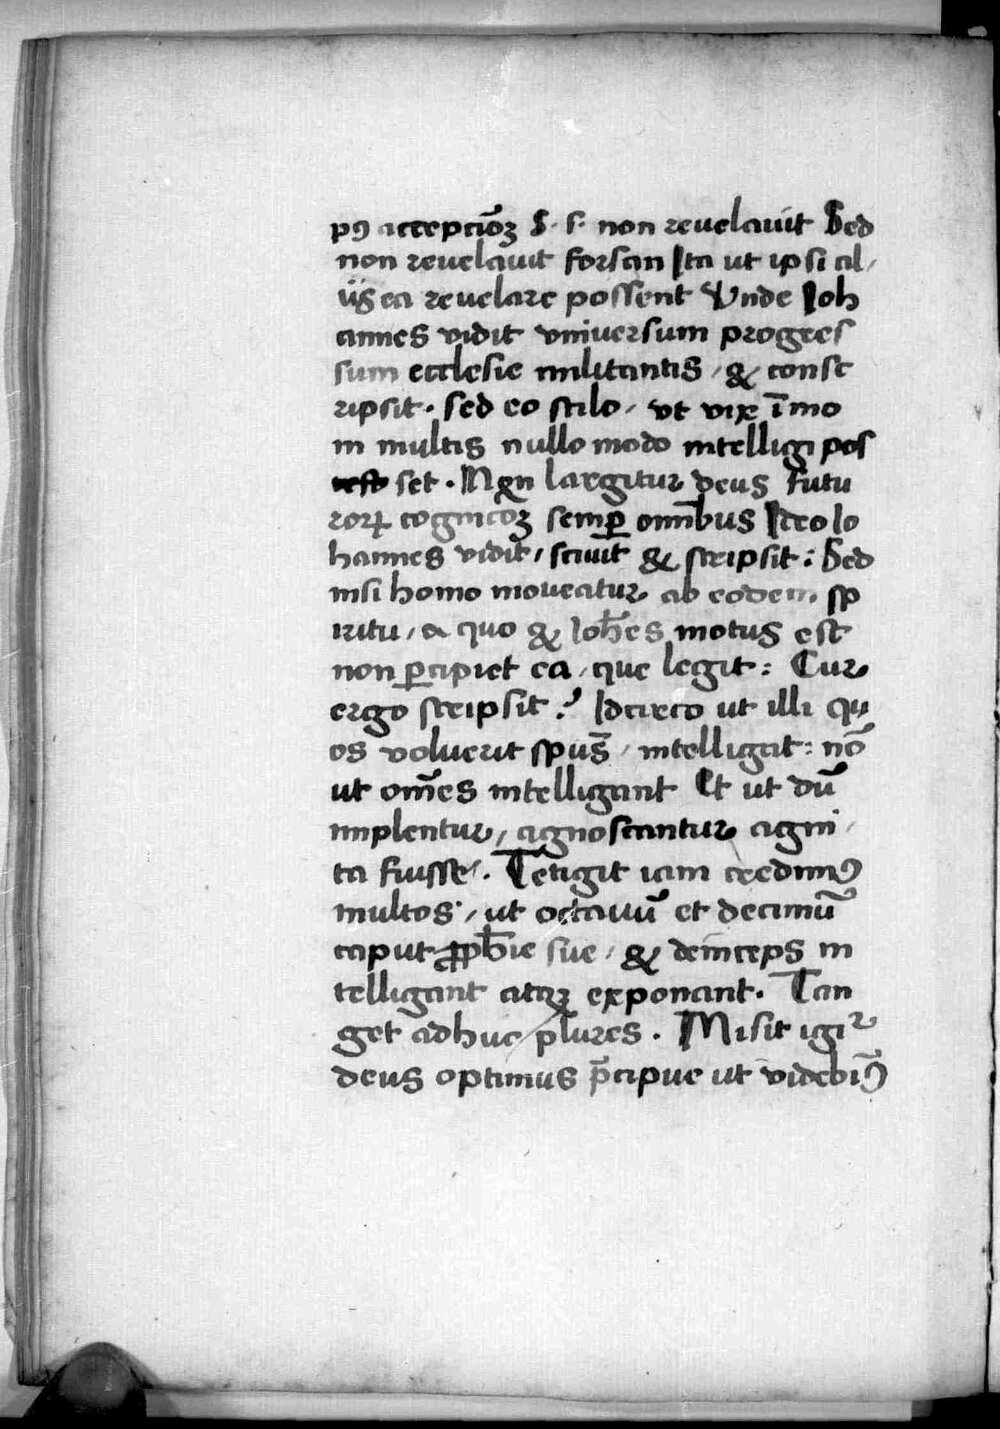 pꝰ accepcio᷒ꝫ S. s. non reuelauit Sed
non reuelauit forsan Ita ut ipsi al/
ijs ea reuelare possent Vnde Joh
annes vidit vniuersum progres
sum ecclesie militantis / & consc
ripsit. sed eo stilo / vt vix ī mo
in multis nullo modo intelligi pos
set. Nā largitur deus futu
rorꝝ cognicōꝫ semꝑ omībus Ideo Io
hannes vidit / sciuit & scripsit : Sed
nisi homo moueatur ab eodem sp
iritu / a quo & Joh̄es motus est
non ꝑcipiet ea / que legit : Cur
ergo scripsit? Idcirco ut illi qu
os voluerit spūs / intelligāt : nō
ut om̄es intelligant Et ut dū
implentur / agnoscantur agni/
ta fuisse. Tetigit iam credimꝰ
multos / ut octauū et decimū
caput ꝓph̄ie sue / & deinceps in
telligant atqꝫ exponant. Tan
get adhuc plures. Misit igiᷣ
deus optimus p̄cipue ut videbimꝰ